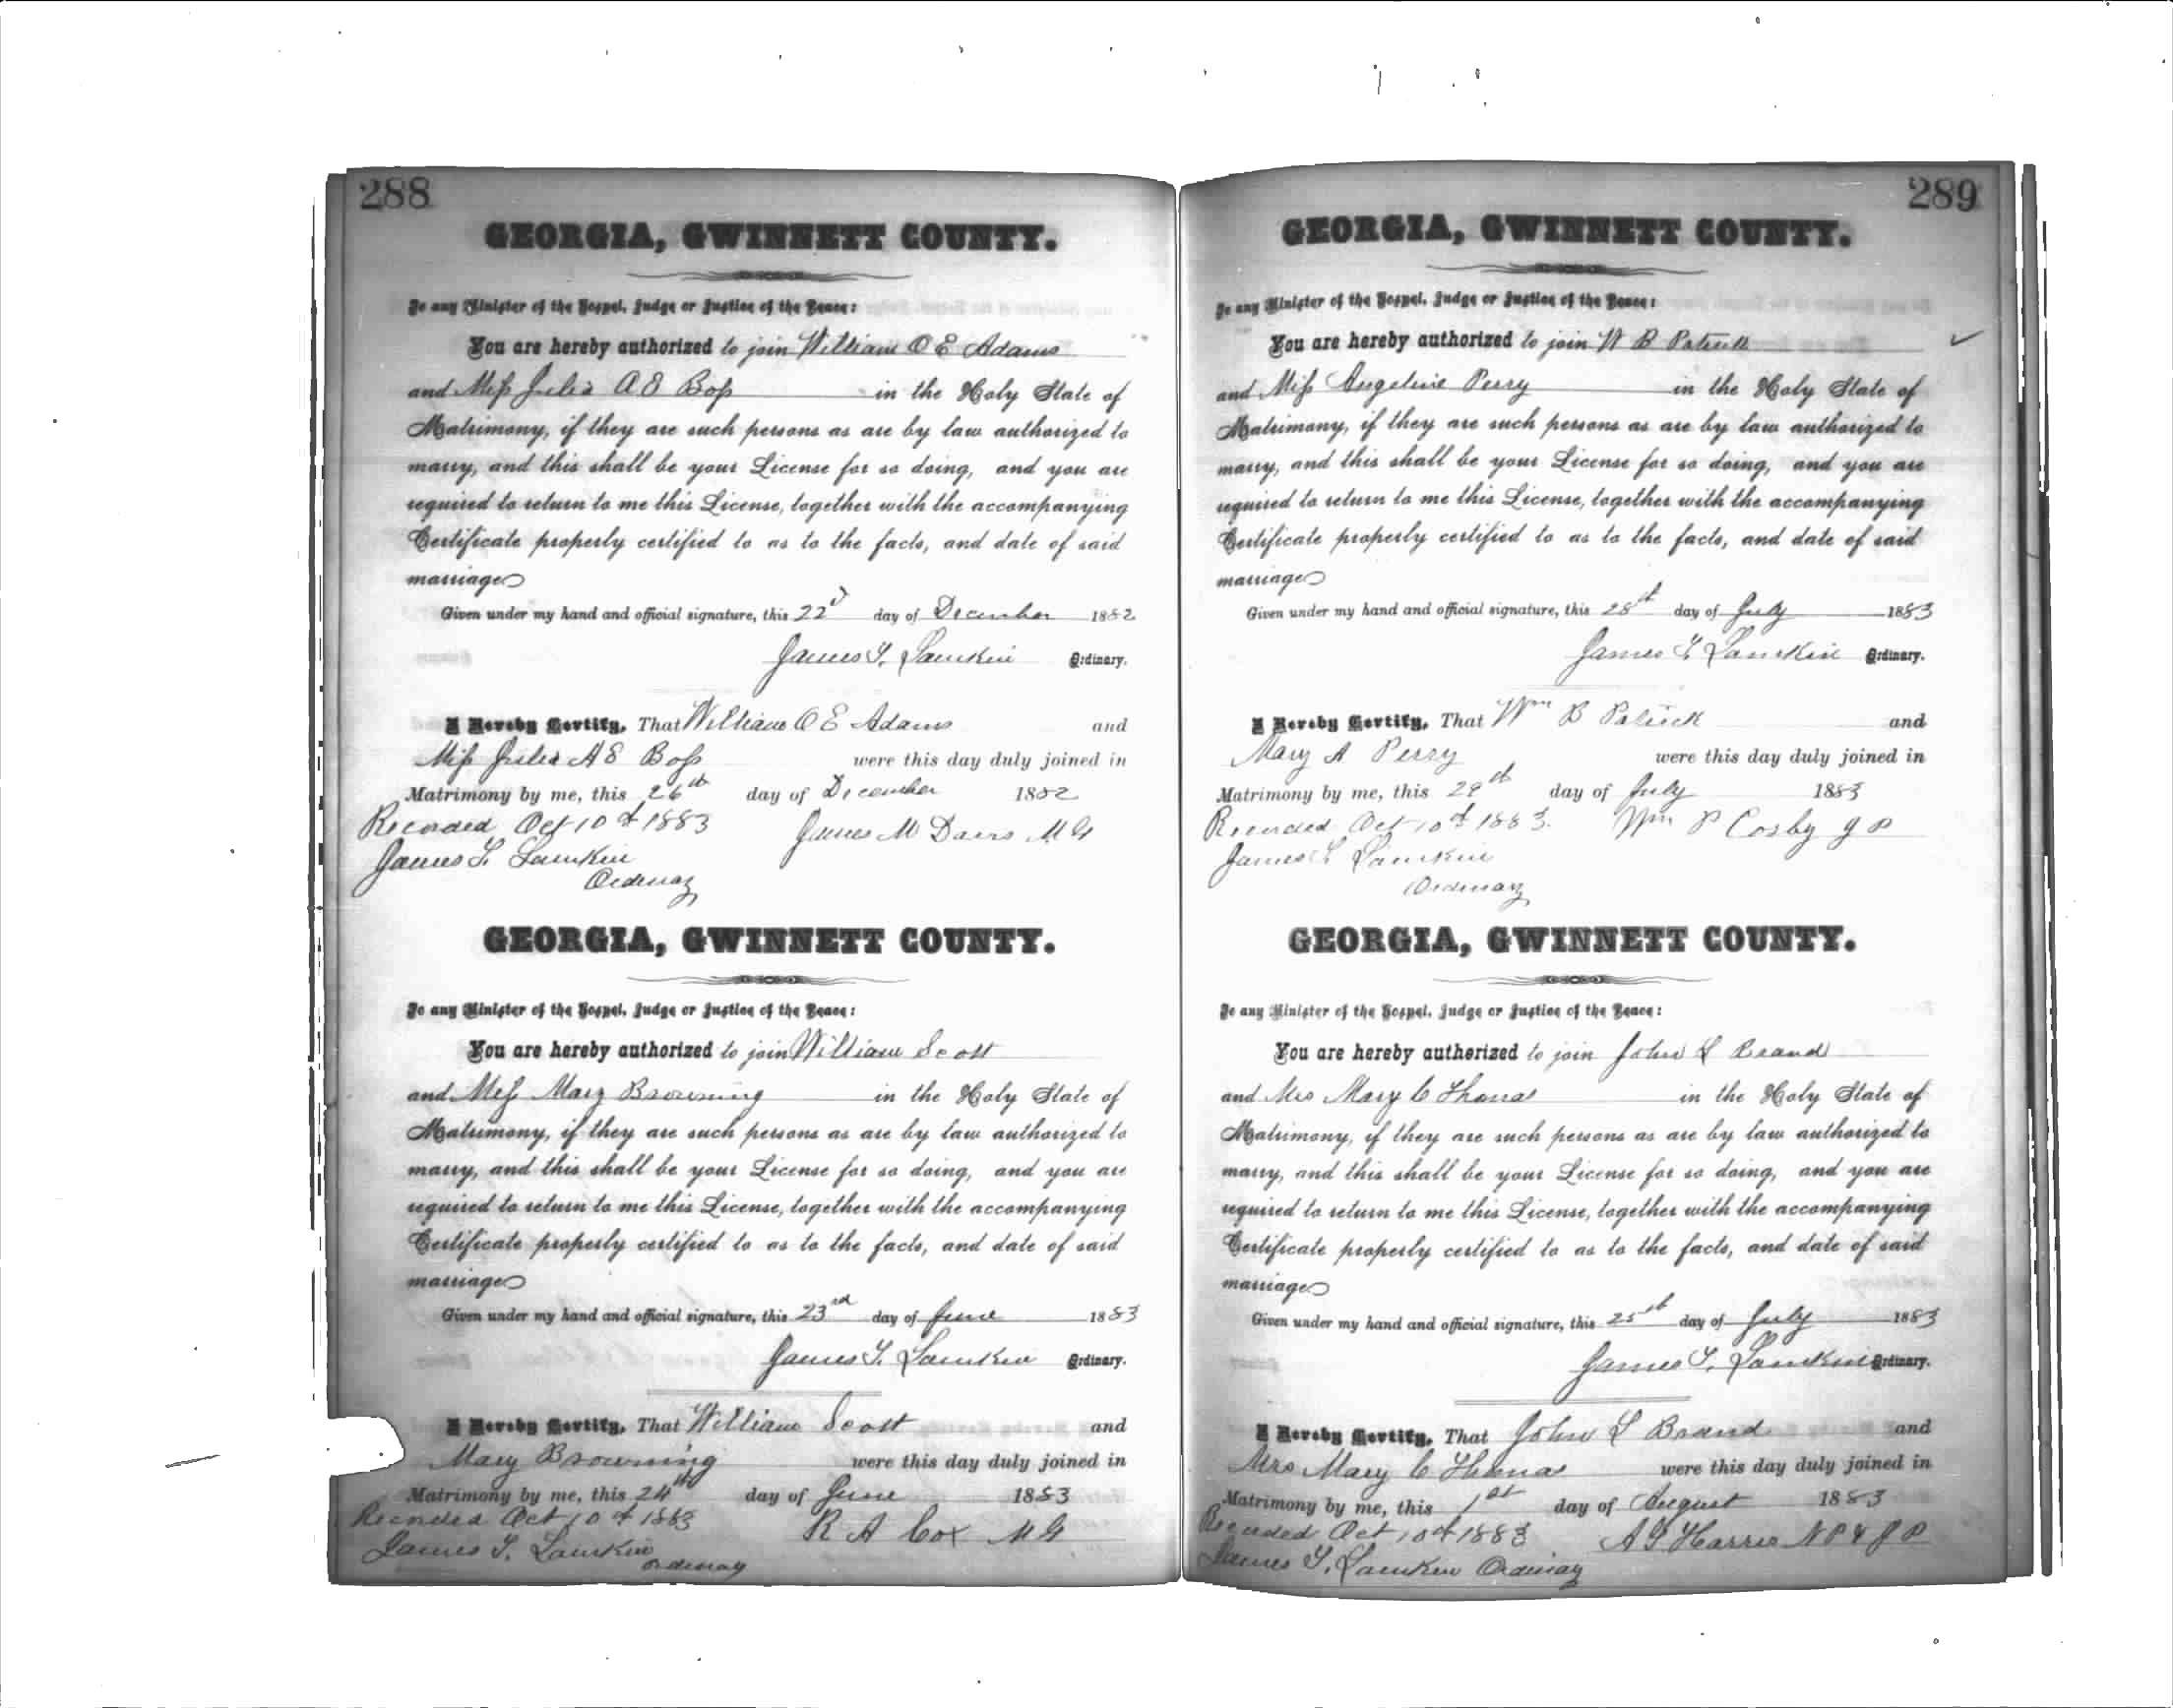 288
GEORGIA, GWINNETT COUNTY.
To any Minister of the Gospel, Judge or Justice of the Peace:
You are hereby authorized to join William O E Adams
and Miss Julia A E Boss in the Holy State of
Matrimony, if they are such persons as are by law authorized to
marry, and this shall be your License for so doing, and you are
required to return to me this License, together with the accompanying
Certificate properly certified to as to the facts, and date of said
marriage
Given under my hand and official signature, this 22d day of December 1882
James T. Lamkin Ordinary.
I Hereby Certify, That William O E Adams and
Miss Julia A E Boss were this day duly joined in
Matrimony by me, this 26th day of December 1882
Recorded Oct 10th 1883 James M Davis M G
James T. Lamkin
Ordinary
GEORGIA, GWINNETT COUNTY.
To any Minister of the Gospel, Judge or Justice of the Peace:
You are hereby authorized to join William Scott
and Miss Mary Browning in the Holy State of
Matrimony, if they are such persons as are by law authorized to
marry, and this shall be your License for so doing, and you are
required to return to me this License, together with the accompanying
Certificate properly certified to as to the facts, and date of said
marriage
Given under my hand and official signature, this 23rd day of June 1883
James T. Lamkin Ordinary.
I Hereby Certify, That William Scott and
Mary Browning were this day duly joined in
Matrimony by me, this 24th day of June 1883
Recorded Oct 10th 1883 R A Cox M G
James T. Lamkin
Ordinary
289
GEORGIA, GWINNETT COUNTY.
To any Minister of the Gospel, Judge or Justice of the Peace:
You are hereby authorized to join W B Patrick
and Miss Angeline Perry in the Holy State of
Matrimony, if they are such persons as are by law authorized to
marry, and this shall be your License for so doing, and you are
required to return to me this License, together with the accompanying
Certificate properly certified to as to the facts, and date of said
marriage
Given under my hand and official signature, this 28th day of July 1883
James T. Lamkin Ordinary.
I Hereby Certify, That Wm B Patrick and
Mary A Perry were this day duly joined in
Matrimony by me, this 29th day of July 1883
Recorded Oct 10th 1883. Wm P Cosby J P
James T. Lamkin
Ordinary
GEORGIA, GWINNETT COUNTY.
To any Minister of the Gospel, Judge or Justice of the Peace:
You are hereby authorized to join John L Brand
and Mrs Mary C Thomas in the Holy State of
Matrimony, if they are such persons as are by law authorized to
marry, and this shall be your License for so doing, and you are
required to return to me this License, together with the accompanying
Certificate properly certified to as to the facts, and date of said
marriage
Given under my hand and official signature, this 25th day of July 1883
James T. Lamkin Ordinary.
I Hereby Certify, That John L Brand and
Mrs Mary C Thomas were this day duly joined in
Matrimony by me, this 1st day of August 1883
Recorded Oct 10th 1883 A G Harris N P & J P
James T. Lamkin Ordinary